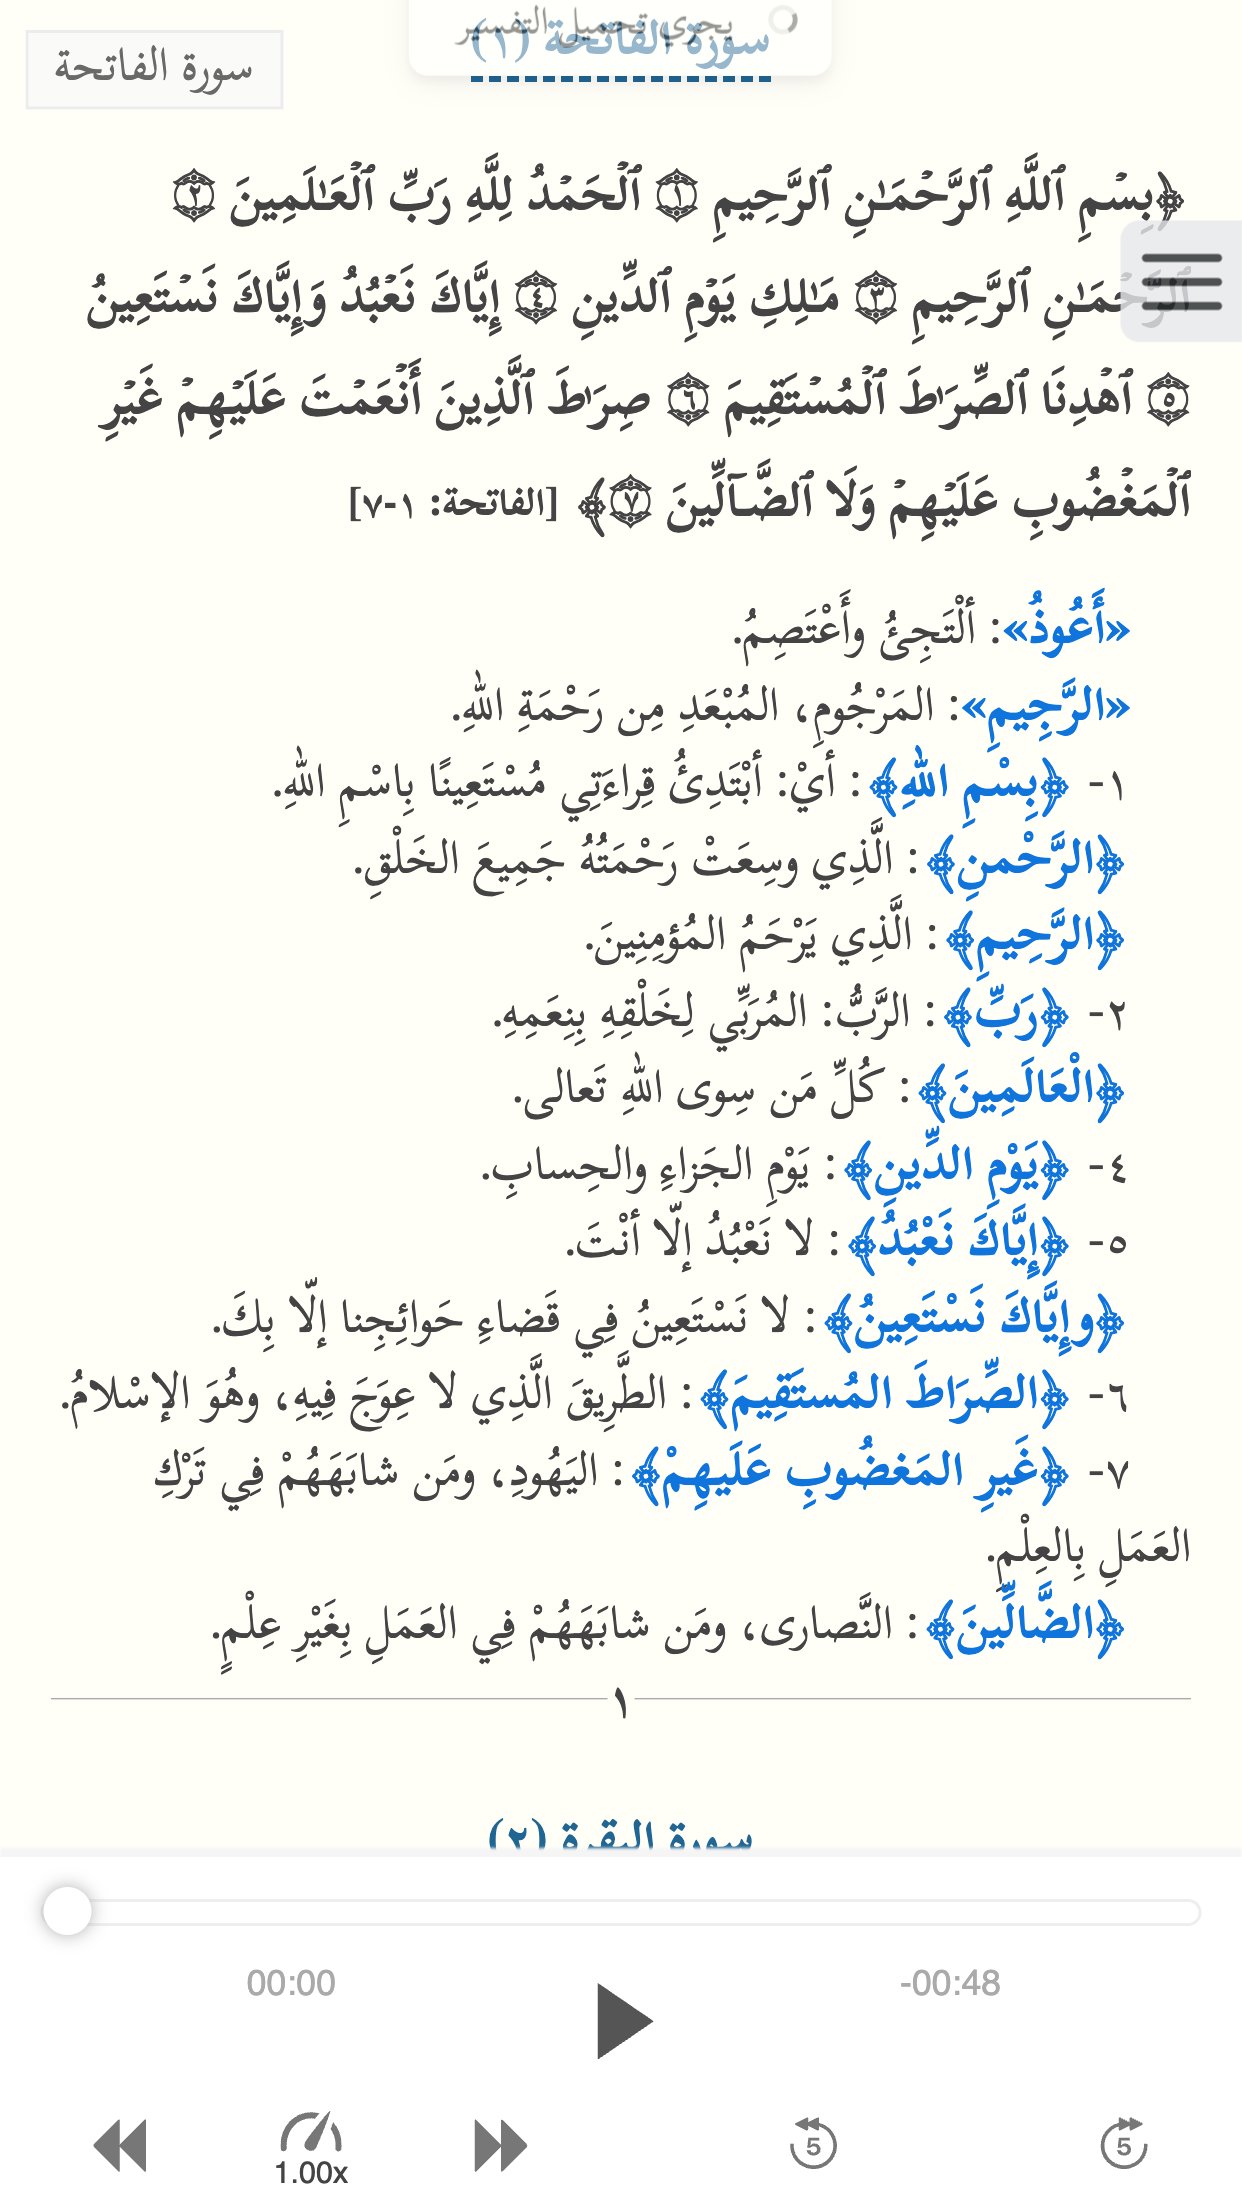 يجري تحميل التفسير
سورة الفاتحة (١)
سورة الفاتحة
﴿بِسۡمِ ٱللَّهِ ٱلرَّحۡمَـٰنِ ٱلرَّحِیمِ ١ ٱلۡحَمۡدُ لِلَّهِ رَبِّ ٱلۡعَـٰلَمِینَ ٢
ٱلرَّحۡمَـٰنِ ٱلرَّحِیمِ ٣ مَـٰلِكِ یَوۡمِ ٱلدِّینِ ٤ إِیَّاكَ نَعۡبُدُ وَإِیَّاكَ نَسۡتَعِینُ
٥ ٱهۡدِنَا ٱلصِّرَ ٰ⁠طَ ٱلۡمُسۡتَقِیمَ ٦ صِرَ ٰ⁠طَ ٱلَّذِینَ أَنۡعَمۡتَ عَلَیۡهِمۡ غَیۡرِ
ٱلۡمَغۡضُوبِ عَلَیۡهِمۡ وَلَا ٱلضَّاۤلِّینَ ٧﴾ [الفاتحة: ١-٧]
«أَعُوذُ»: ألْتَجِئُ وأَعْتَصِمُ.
«الرَّجِيمِ»: المَرْجُومِ، المُبْعَدِ مِن رَحْمَةِ اللهِ.
١- ﴿بِسْمِ اللهِ﴾: أيْ: أبْتَدِئُ قِراءَتِي مُسْتَعِينًا بِاسْمِ اللهِ.
﴿الرَّحْمنِ﴾: الَّذِي وسِعَتْ رَحْمَتُهُ جَمِيعَ الخَلْقِ.
﴿الرَّحِيمِ﴾: الَّذِي يَرْحَمُ المُؤمِنِينَ.
٢- ﴿رَبِّ﴾: الرَّبُّ: المُرَبِّي لِخَلْقِهِ بِنِعَمِهِ.
﴿الْعَالَمِينَ﴾: كُلِّ مَن سِوى اللهِ تَعالى.
٤- ﴿يَوْمِ الدِّينِ﴾: يَوْمِ الجَزاءِ والحِسابِ.
٥- ﴿إِيَّاكَ نَعْبُدُ﴾: لا نَعْبُدُ إلّا أنْتَ.
﴿وإِيَّاكَ نَسْتَعِينُ﴾: لا نَسْتَعِينُ فِي قَضاءِ حَوائِجِنا إلّا بِكَ.
٦- ﴿الصِّرَاطَ المُستَقِيمَ﴾: الطَّرِيقَ الَّذِي لا عِوَجَ فِيهِ، وهُوَ الإسْلامُ.
٧- ﴿غَيرِ المَغضُوبِ عَلَيهِمْ﴾: اليَهُودِ، ومَن شابَهَهُمْ فِي تَرْكِ
العَمَلِ بِالعِلْمِ.
﴿الضَّالِّينَ﴾: النَّصارى، ومَن شابَهَهُمْ فِي العَمَلِ بِغَيْرِ عِلْمٍ.
١
سورة البقرة (٢)
00:00
-00:48
1.00x
5
5